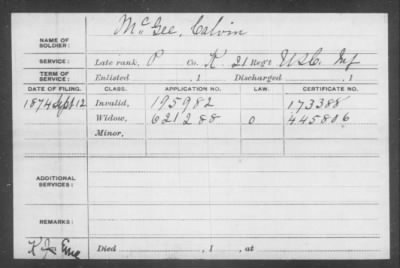 McGee, Calvin
NAME OF SOLDIER:
SERVICE: Late rank, P Co. K 21 Reg't U.S.C. Inf
TERM OF SERVICE: Enlisted , 1 Discharged , 1
DATE OF FILING. CLASS. APPLICATION NO. LAW. CERTIFICATE NO.
1874 Sept 12 Invalid, 195982 173388
Widow, 621288 0 445806
Minor,
ADDITIONAL SERVICES:
REMARKS:
Died , 1 , at